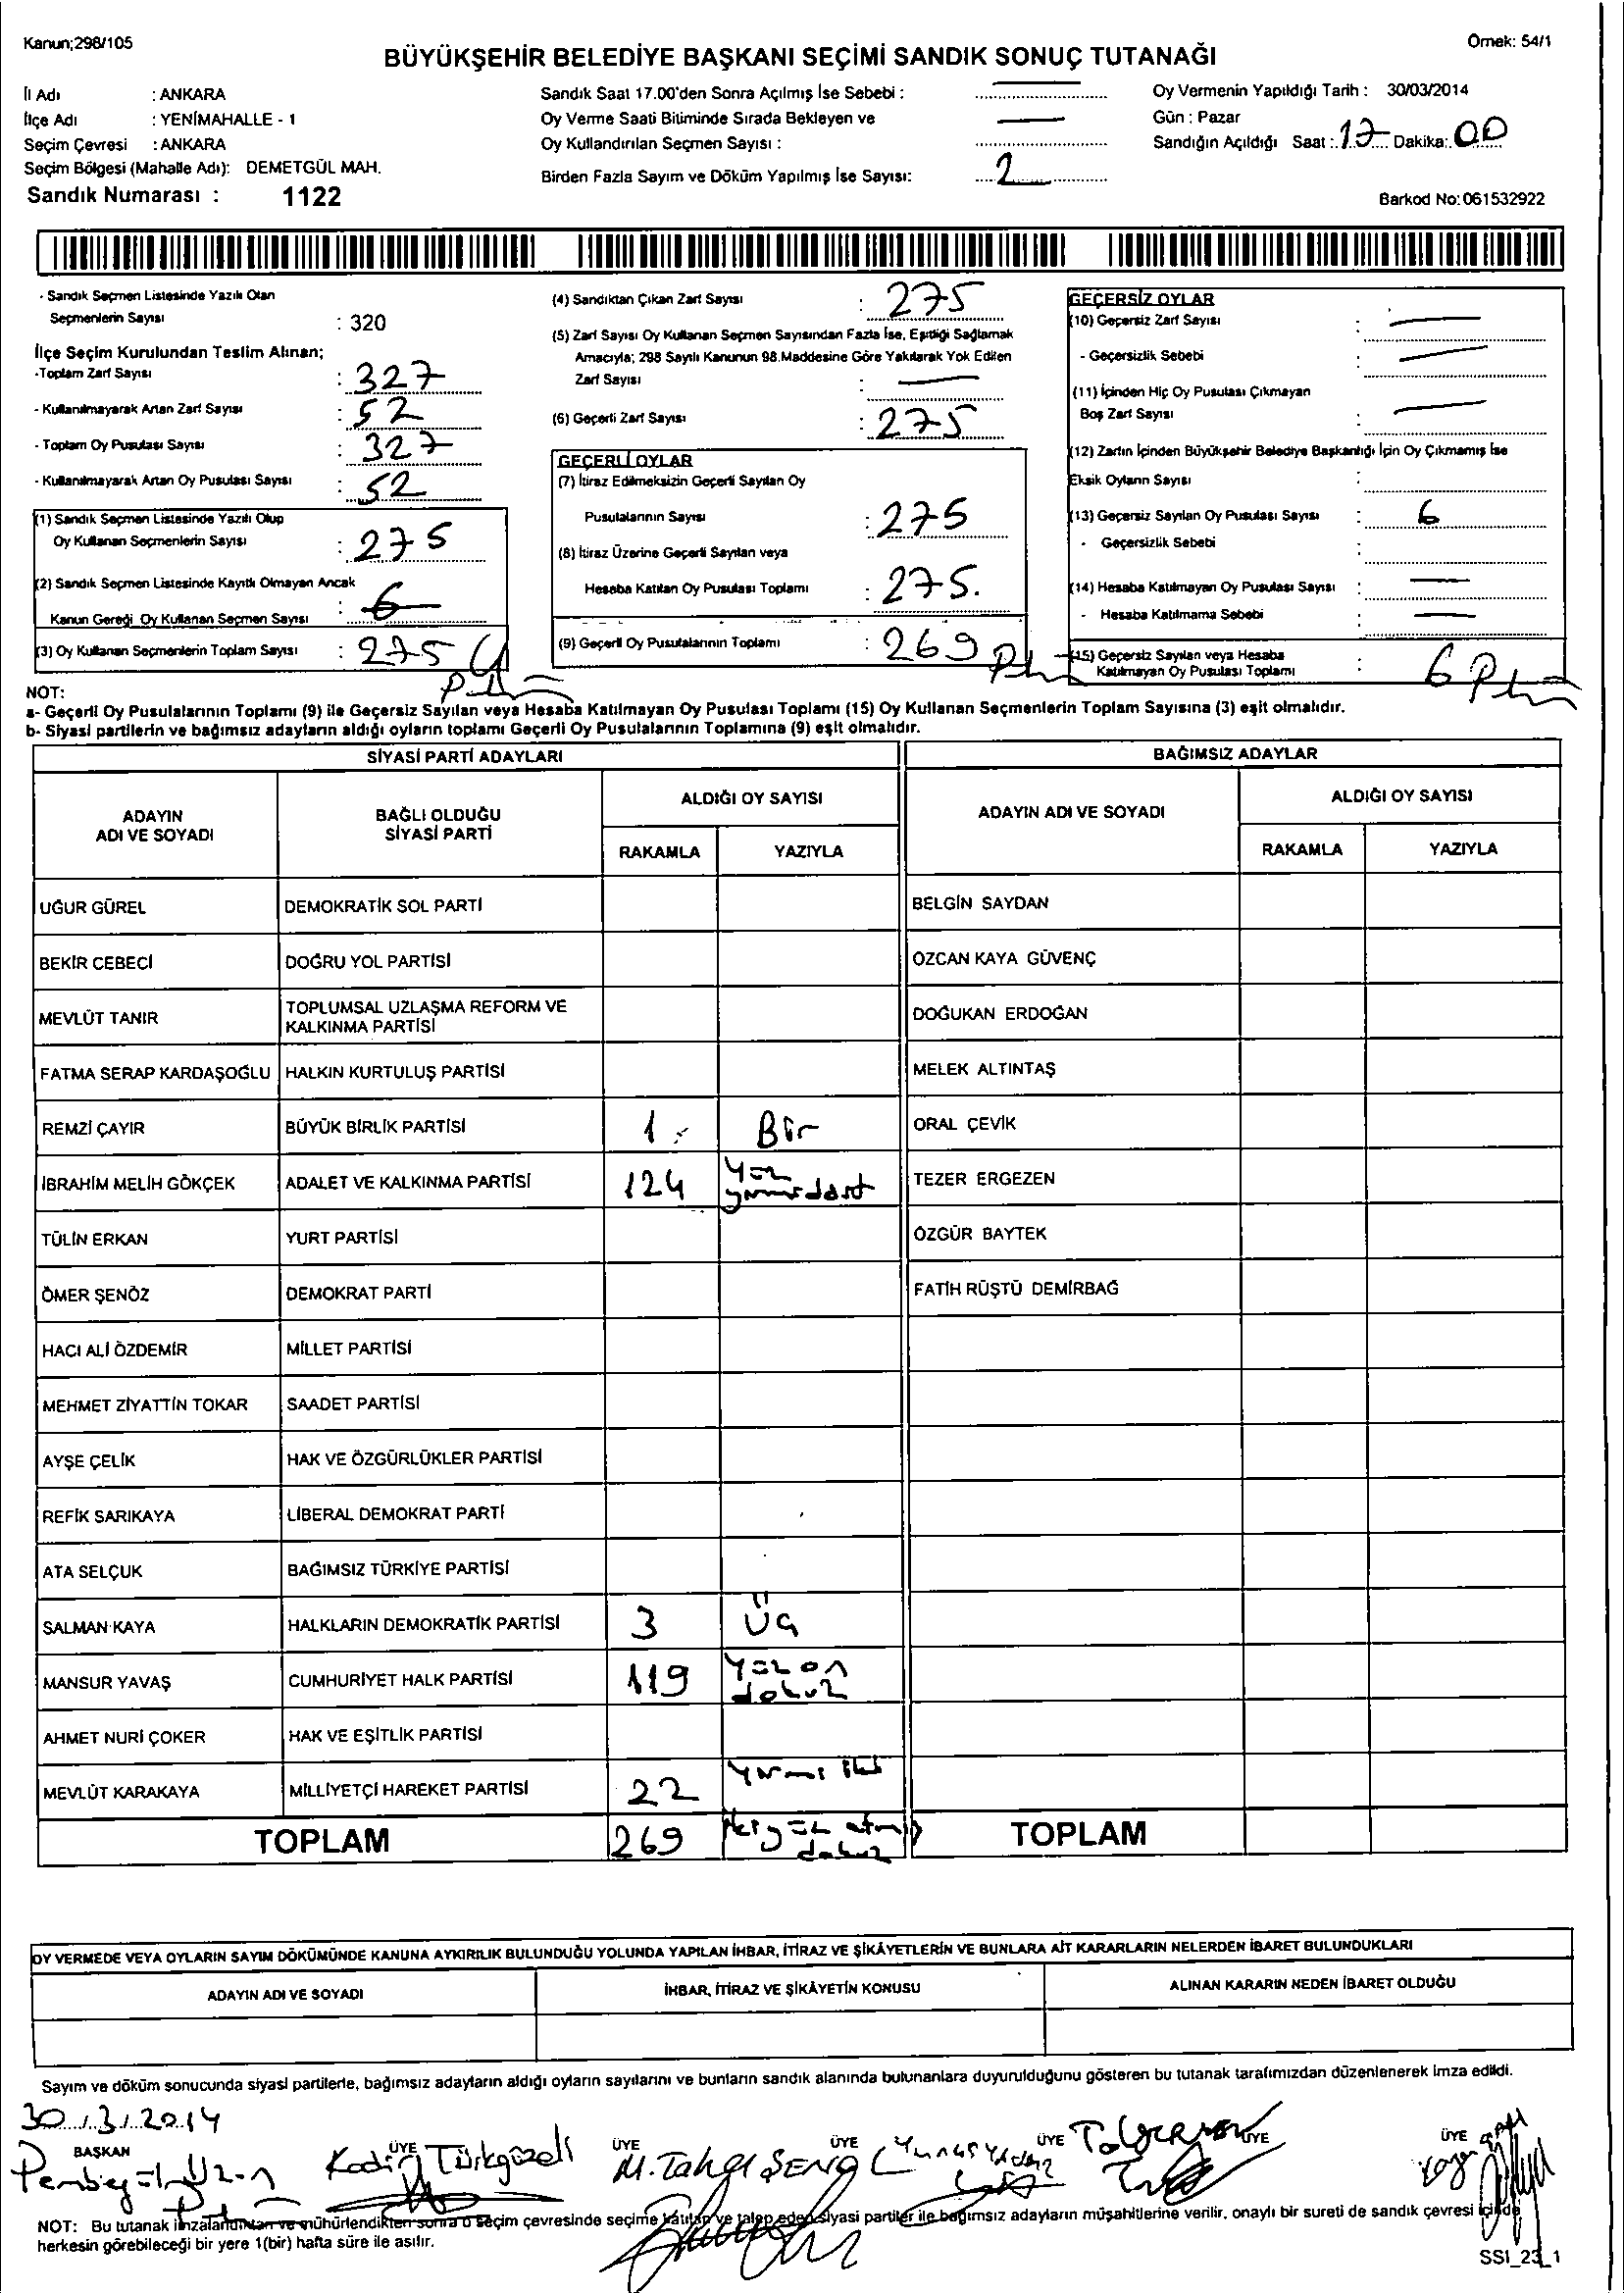 Kanun;298/105
Örnek: 54/1
BÜYÜKŞEHİR BELEDİYE BAŞKANI SEÇİMİ SANDIK SONUÇ TUTANAĞI
İl Adı : ANKARA
İlçe Adı : YENİMAHALLE - 1
Seçim Çevresi : ANKARA
Seçim Bölgesi (Mahalle Adı): DEMETGÜL MAH.
Sandık Numarası : 1122
Sandık Saat 17.00'den Sonra Açılmış İse Sebebi : —
Oy Verme Saati Bitiminde Sırada Bekleyen ve
Oy Kullandırılan Seçmen Sayısı : —
Birden Fazla Sayım ve Döküm Yapılmış İse Sayısı: 2
Oy Vermenin Yapıldığı Tarih : 30/03/2014
Gün : Pazar
Sandığın Açıldığı Saat : 17 Dakika: 00
Barkod No:061532922
- Sandık Seçmen Listesinde Yazılı Olan
Seçmenlerin Sayısı : 320
İlçe Seçim Kurulundan Teslim Alınan;
-Toplam Zarf Sayısı : 327
- Kullanılmayarak Artan Zarf Sayısı : 52
- Toplam Oy Pusulası Sayısı : 327
- Kullanılmayarak Artan Oy Pusulası Sayısı : 52
(1) Sandık Seçmen Listesinde Yazılı Olup
Oy Kullanan Seçmenlerin Sayısı : 275
(2) Sandık Seçmen Listesinde Kayıtlı Olmayan Ancak
Kanun Gereği Oy Kullanan Seçmen Sayısı : 6
(3) Oy Kullanan Seçmenlerin Toplam Sayısı : 275
(4) Sandıktan Çıkan Zarf Sayısı : 275
(5) Zarf Sayısı Oy Kullanan Seçmen Sayısından Fazla İse, Eşitliği Sağlamak
Amacıyla; 298 Sayılı Kanunun 98.Maddesine Göre Yakılarak Yok Edilen
Zarf Sayısı : —
(6) Geçerli Zarf Sayısı : 275
GEÇERLİ OYLAR
(7) İtiraz Edilmeksizin Geçerli Sayılan Oy
Pusulalarının Sayısı : 275
(8) İtiraz Üzerine Geçerli Sayılan veya
Hesaba Katılan Oy Pusulası Toplamı : 275.
(9) Geçerli Oy Pusulalarının Toplamı : 269
GEÇERSİZ OYLAR
(10) Geçersiz Zarf Sayısı : —
- Geçersizlik Sebebi : —
(11) İçinden Hiç Oy Pusulası Çıkmayan
Boş Zarf Sayısı : —
(12) Zarfın İçinden Büyükşehir Belediye Başkanlığı İçin Oy Çıkmamış İse
Eksik Oyların Sayısı :
(13) Geçersiz Sayılan Oy Pusulası Sayısı : 6
- Geçersizlik Sebebi :
(14) Hesaba Katılmayan Oy Pusulası Sayısı : —
- Hesaba Katılmama Sebebi : —
(15) Geçersiz Sayılan veya Hesaba
Katılmayan Oy Pusulası Toplamı : 6
NOT:
a- Geçerli Oy Pusulalarının Toplamı (9) ile Geçersiz Sayılan veya Hesaba Katılmayan Oy Pusulası Toplamı (15) Oy Kullanan Seçmenlerin Toplam Sayısına (3) eşit olmalıdır.
b- Siyasi partilerin ve bağımsız adayların aldığı oyların toplamı Geçerli Oy Pusulalarının Toplamına (9) eşit olmalıdır.
SİYASİ PARTİ ADAYLARI
BAĞIMSIZ ADAYLAR
ADAYIN
ADI VE SOYADI
BAĞLI OLDUĞU
SİYASİ PARTİ
ALDIĞI OY SAYISI
RAKAMLA YAZIYLA
ADAYIN ADI VE SOYADI
ALDIĞI OY SAYISI
RAKAMLA YAZIYLA
UĞUR GÜREL DEMOKRATİK SOL PARTİ BELGİN SAYDAN
BEKİR CEBECİ DOĞRU YOL PARTİSİ ÖZCAN KAYA GÜVENÇ
MEVLÜT TANIR TOPLUMSAL UZLAŞMA REFORM VE KALKINMA PARTİSİ DOĞUKAN ERDOĞAN
FATMA SERAP KARDAŞOĞLU HALKIN KURTULUŞ PARTİSİ MELEK ALTINTAŞ
REMZİ ÇAYIR BÜYÜK BİRLİK PARTİSİ 1 Bir ORAL ÇEVİK
İBRAHİM MELİH GÖKÇEK ADALET VE KALKINMA PARTİSİ 124 Yüz yirmidört TEZER ERGEZEN
TÜLİN ERKAN YURT PARTİSİ ÖZGÜR BAYTEK
ÖMER ŞENÖZ DEMOKRAT PARTİ FATİH RÜŞTÜ DEMİRBAĞ
HACI ALİ ÖZDEMİR MİLLET PARTİSİ
MEHMET ZİYATTİN TOKAR SAADET PARTİSİ
AYŞE ÇELİK HAK VE ÖZGÜRLÜKLER PARTİSİ
REFİK SARIKAYA LİBERAL DEMOKRAT PARTİ
ATA SELÇUK BAĞIMSIZ TÜRKİYE PARTİSİ
SALMAN KAYA HALKLARIN DEMOKRATİK PARTİSİ 3 Üç
MANSUR YAVAŞ CUMHURİYET HALK PARTİSİ 119 Yüz on dokuz
AHMET NURİ ÇOKER HAK VE EŞİTLİK PARTİSİ
MEVLÜT KARAKAYA MİLLİYETÇİ HAREKET PARTİSİ 22 Yirmi iki
TOPLAM 269 iki yüz atmış dokuz TOPLAM
OY VERMEDE VEYA OYLARIN SAYIM DÖKÜMÜNDE KANUNA AYKIRILIK BULUNDUĞU YOLUNDA YAPILAN İHBAR, İTİRAZ VE ŞİKÂYETLERİN VE BUNLARA AİT KARARLARIN NELERDEN İBARET BULUNDUKLARI
ADAYIN ADI VE SOYADI İHBAR, İTİRAZ VE ŞİKÂYETİN KONUSU ALINAN KARARIN NEDEN İBARET OLDUĞU
Sayım ve döküm sonucunda siyasi partilerle, bağımsız adayların aldığı oyların sayılarını ve bunların sandık alanında bulunanlara duyurulduğunu gösteren bu tutanak tarafımızdan düzenlenerek imza edildi.
30/3/2014
BAŞKAN ÜYE ÜYE ÜYE ÜYE ÜYE ÜYE
Pembegül Uzun Kadir Türkgüzeli M. Taha ŞENG Yunus
NOT: Bu tutanak imzalandıktan ve mühürlendikten sonra o seçim çevresinde seçime katılan ve talep eden siyasi partiler ile bağımsız adayların müşahitlerine verilir, onaylı bir sureti de sandık çevresi içinde
herkesin görebileceği bir yere 1(bir) hafta süre ile asılır.
SSI_23_1